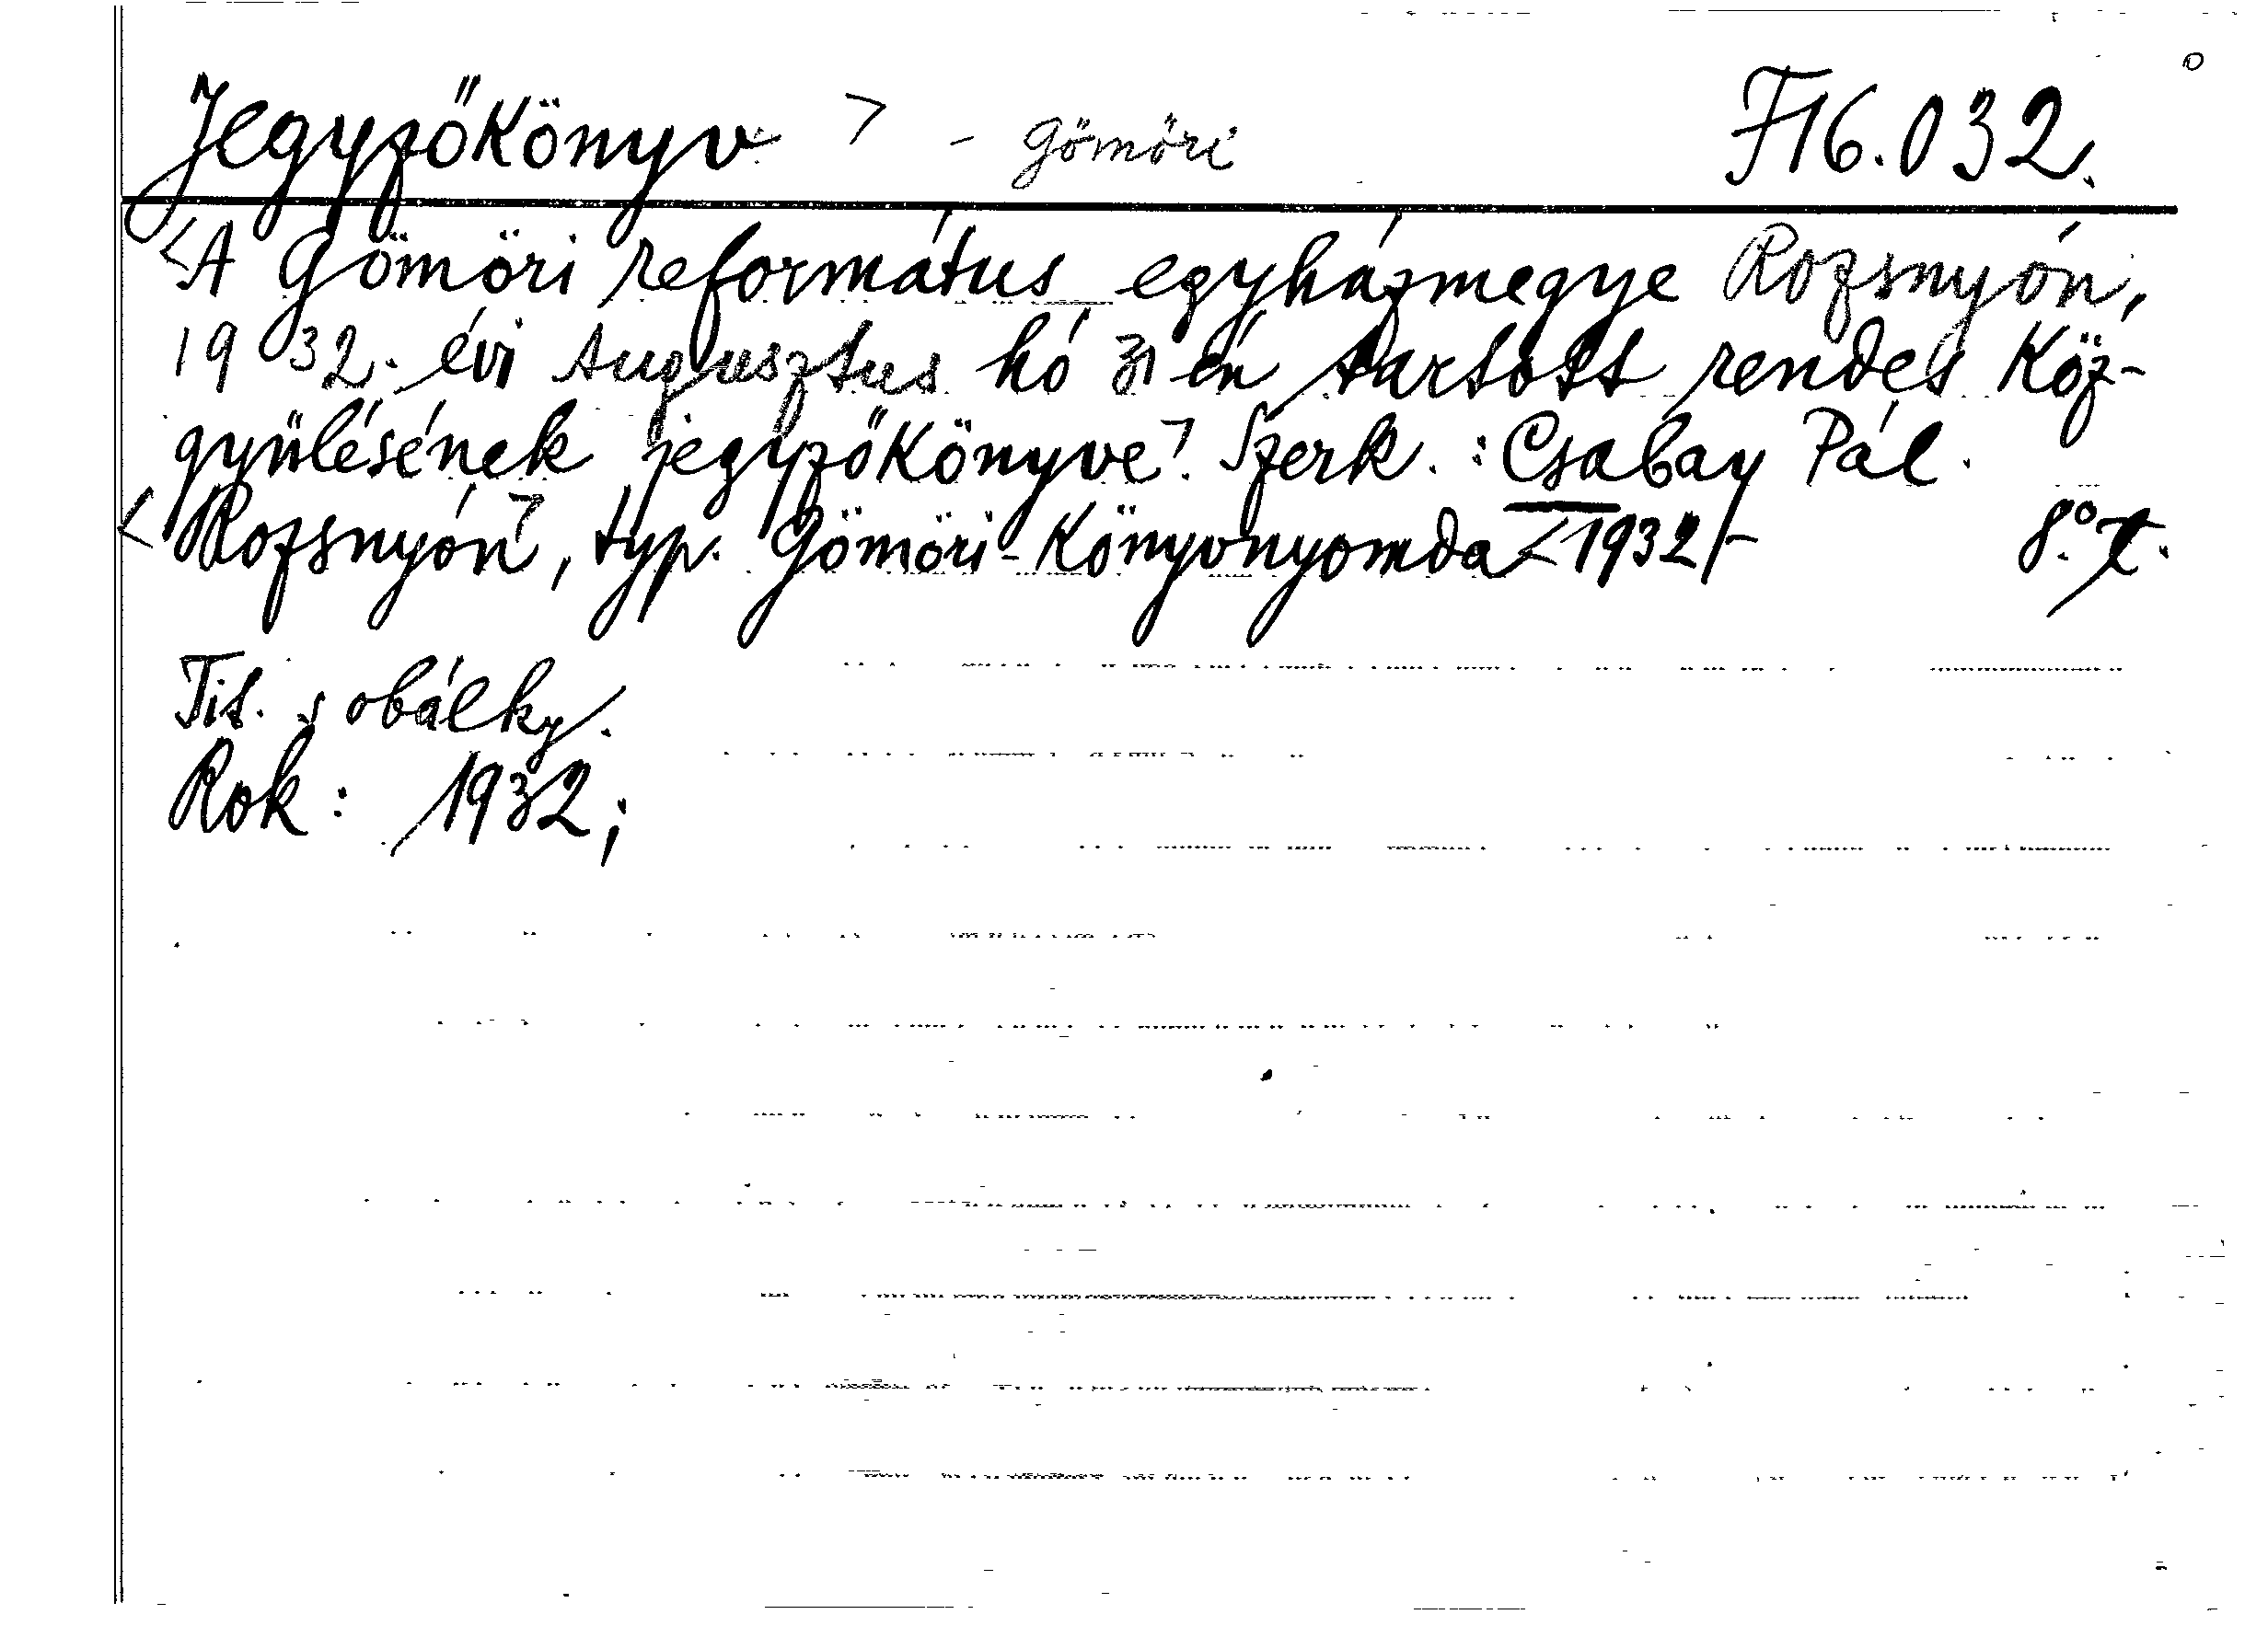 Jegyzőkönyv > - Gömöri F16.032.
<A Gömöri református egyházmegye Rozsnyón,
1932. évi Augusztus hó 31 én tartott rendes Köz-
gyülésének jegyzőkönyve>. Szerk.: Csabay Pál.
<Rozsnyón>, typ. Gömöri-Könyvnyomda <1932/- 8°.
Tit. s obálky.
Rok: 1932;